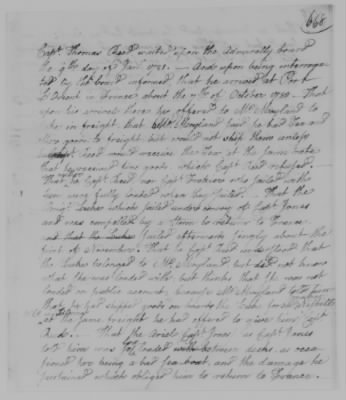 668
Capt. Thomas Read waited upon the Admiralty board
the 9th day of Jany. 1781. — And upon being interroga-
ted by the board informed that he arrived at Port
L'Orient in France about the 7th of October 1780. That
upon his arrival there he offered to Mr. Moyland to
take in freight, that Mr. Moyland said he had Tea and
dry goods to freight but would not ship them unless
Capt. Read would receive the Tea at the same rate
that he received dry goods which Capt. Read refused.
That he Capt. Read nor Capt. sailed with
were very fully loaded when they sailed. That the
Luke which sailed under convoy of Capt. Jones
and was compelled by a storm to return to France
and that the Luke sailed afterwards singly about the
first of November. That he Capt. Read understood that
the Luke belonged to Mr. Moyland but did not know
what she was loaded with, but thinks that she was not
loaded on public account, because Mr. Moyland told him
that he had shipped goods on board the Luke for
at the same freight he had offered to give him Capt.
Read. That the Ariel Capt. Jones, as Capt. Jones
told him was not loaded between decks, as rea-
sons for being a bad sea boat, and the damage he
sustained which obliged him to return to France.